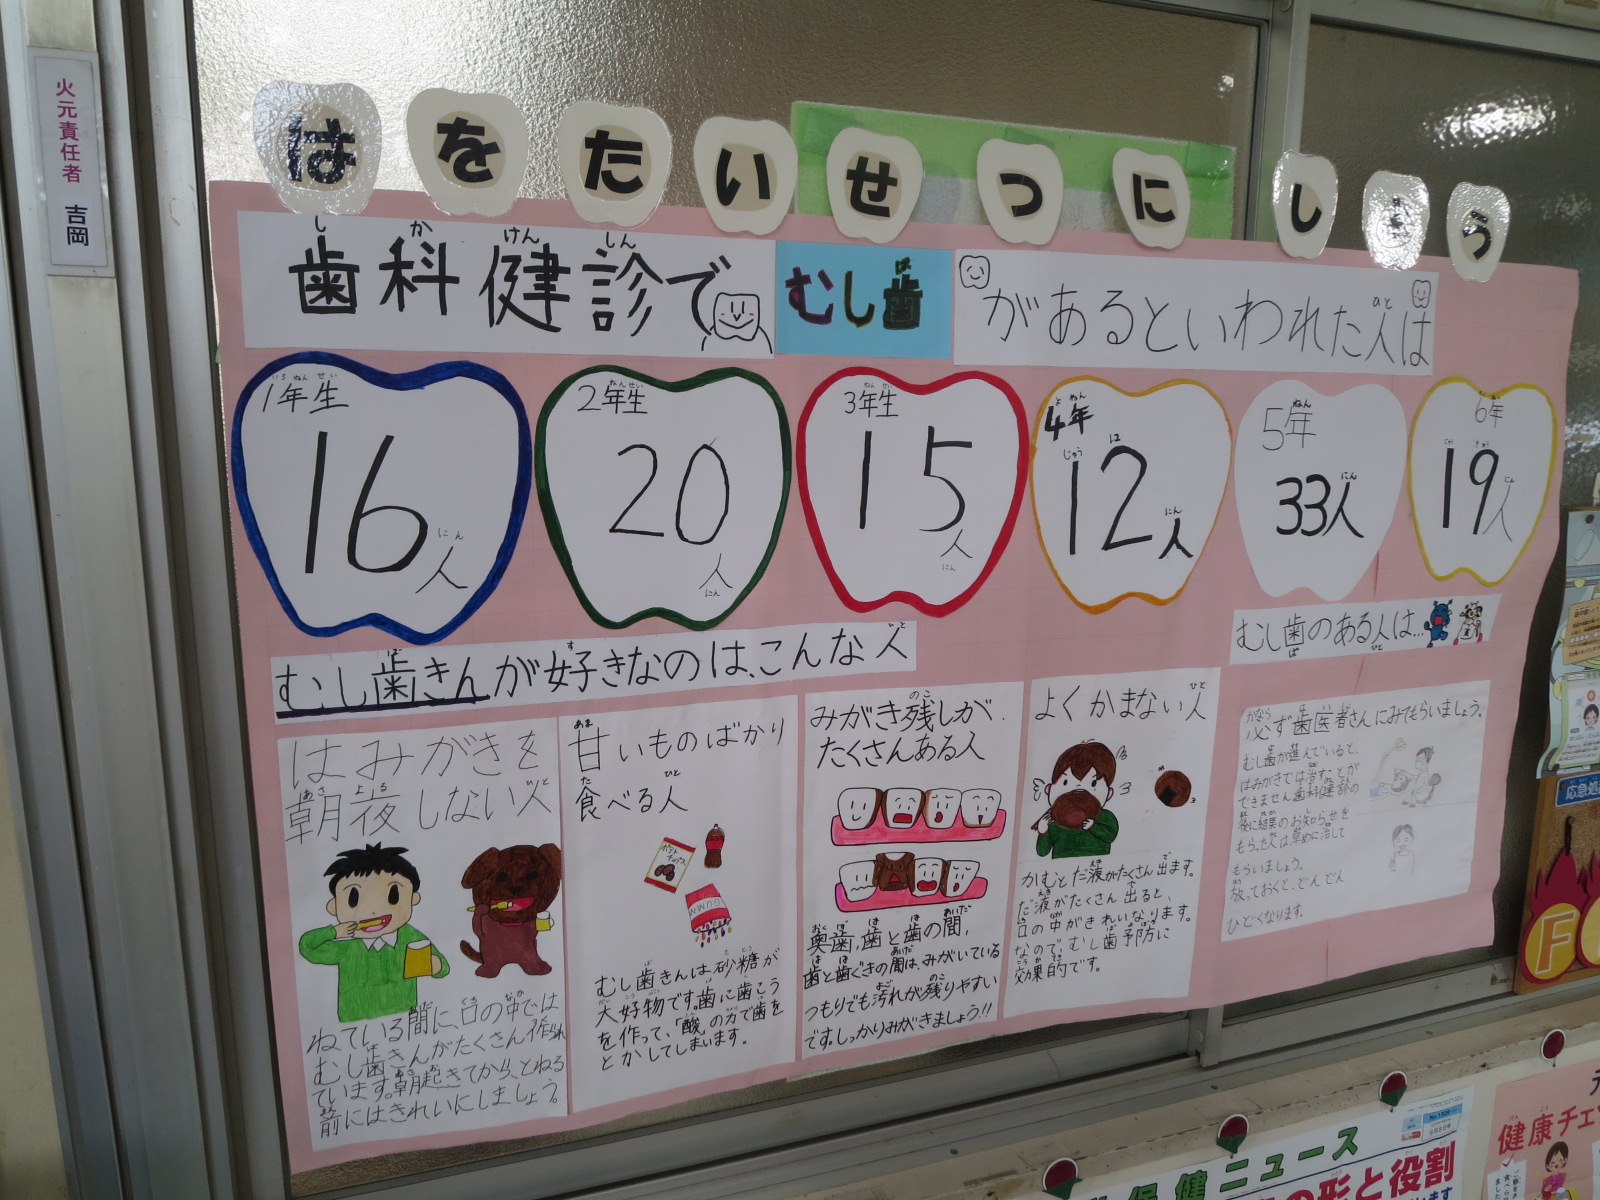 火元責任者 吉岡
はをたいせつにしょう
歯科健診でむし歯があるといわれた人は
1年生
16人
2年生
20人
3年生
15人
4年
12人
5年
33人
6年
19人
むし歯きんが好きなのは、こんな人
むし歯のある人は…
はみがきを
朝夜しない人
ねている間に、口の中では
むし歯きんがたくさん作られ
ています。朝起きてから、とねる
前にはきれいにしましょう。
甘いものばかり
食べる人
ポテトチップス
GUMMY
むし歯きんは、砂糖が
大好物です。歯に歯こう
を作って、「酸」の力で歯を
とかしてしまいます。
みがき残しが
たくさんある人
奥歯、歯と歯の間、
歯と歯ぐきの間は、みがいている
つもりでも汚れが残りやすい
です。しっかりみがきましょう!!
よくかまない人
かむとだ液がたくさん出ます。
だ液がたくさん出ると、
口の中がきれいなります。
なので、むし歯予防に
効果的です。
必ず歯医者さんにみてもらいましょう。
むし歯が進んでいると、
はみがきでは治すことが
できません。歯科健診の
後に結果のお知らせを
もらった人は早めに治して
もらいましょう。
放っておくと、どんどん
ひどくなります。
保健ニュース
の形と役割
健康チェッ
応急処
F